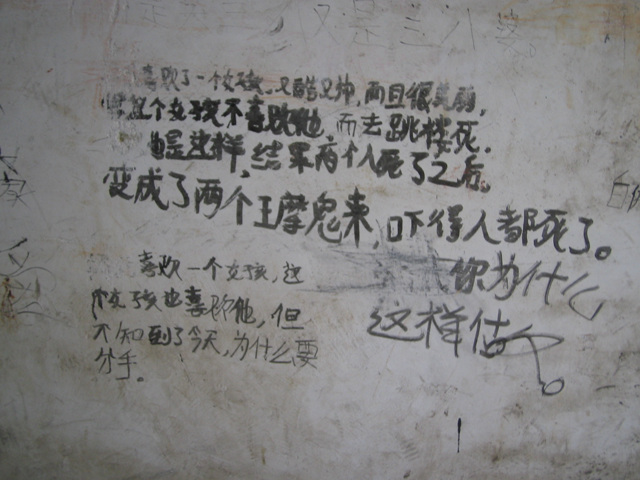 喜欢了一个女孩,又酷又帅,而且很美丽,
这个女孩不喜欢他,而去跳楼死.
也是这样,结果两个人死了之后,
变成了两个王摩鬼来,吓得人都死了。
喜欢一个女孩,这
个女孩也喜欢他,但
不知到了今天,为什么要
分手。
你为什么
这样